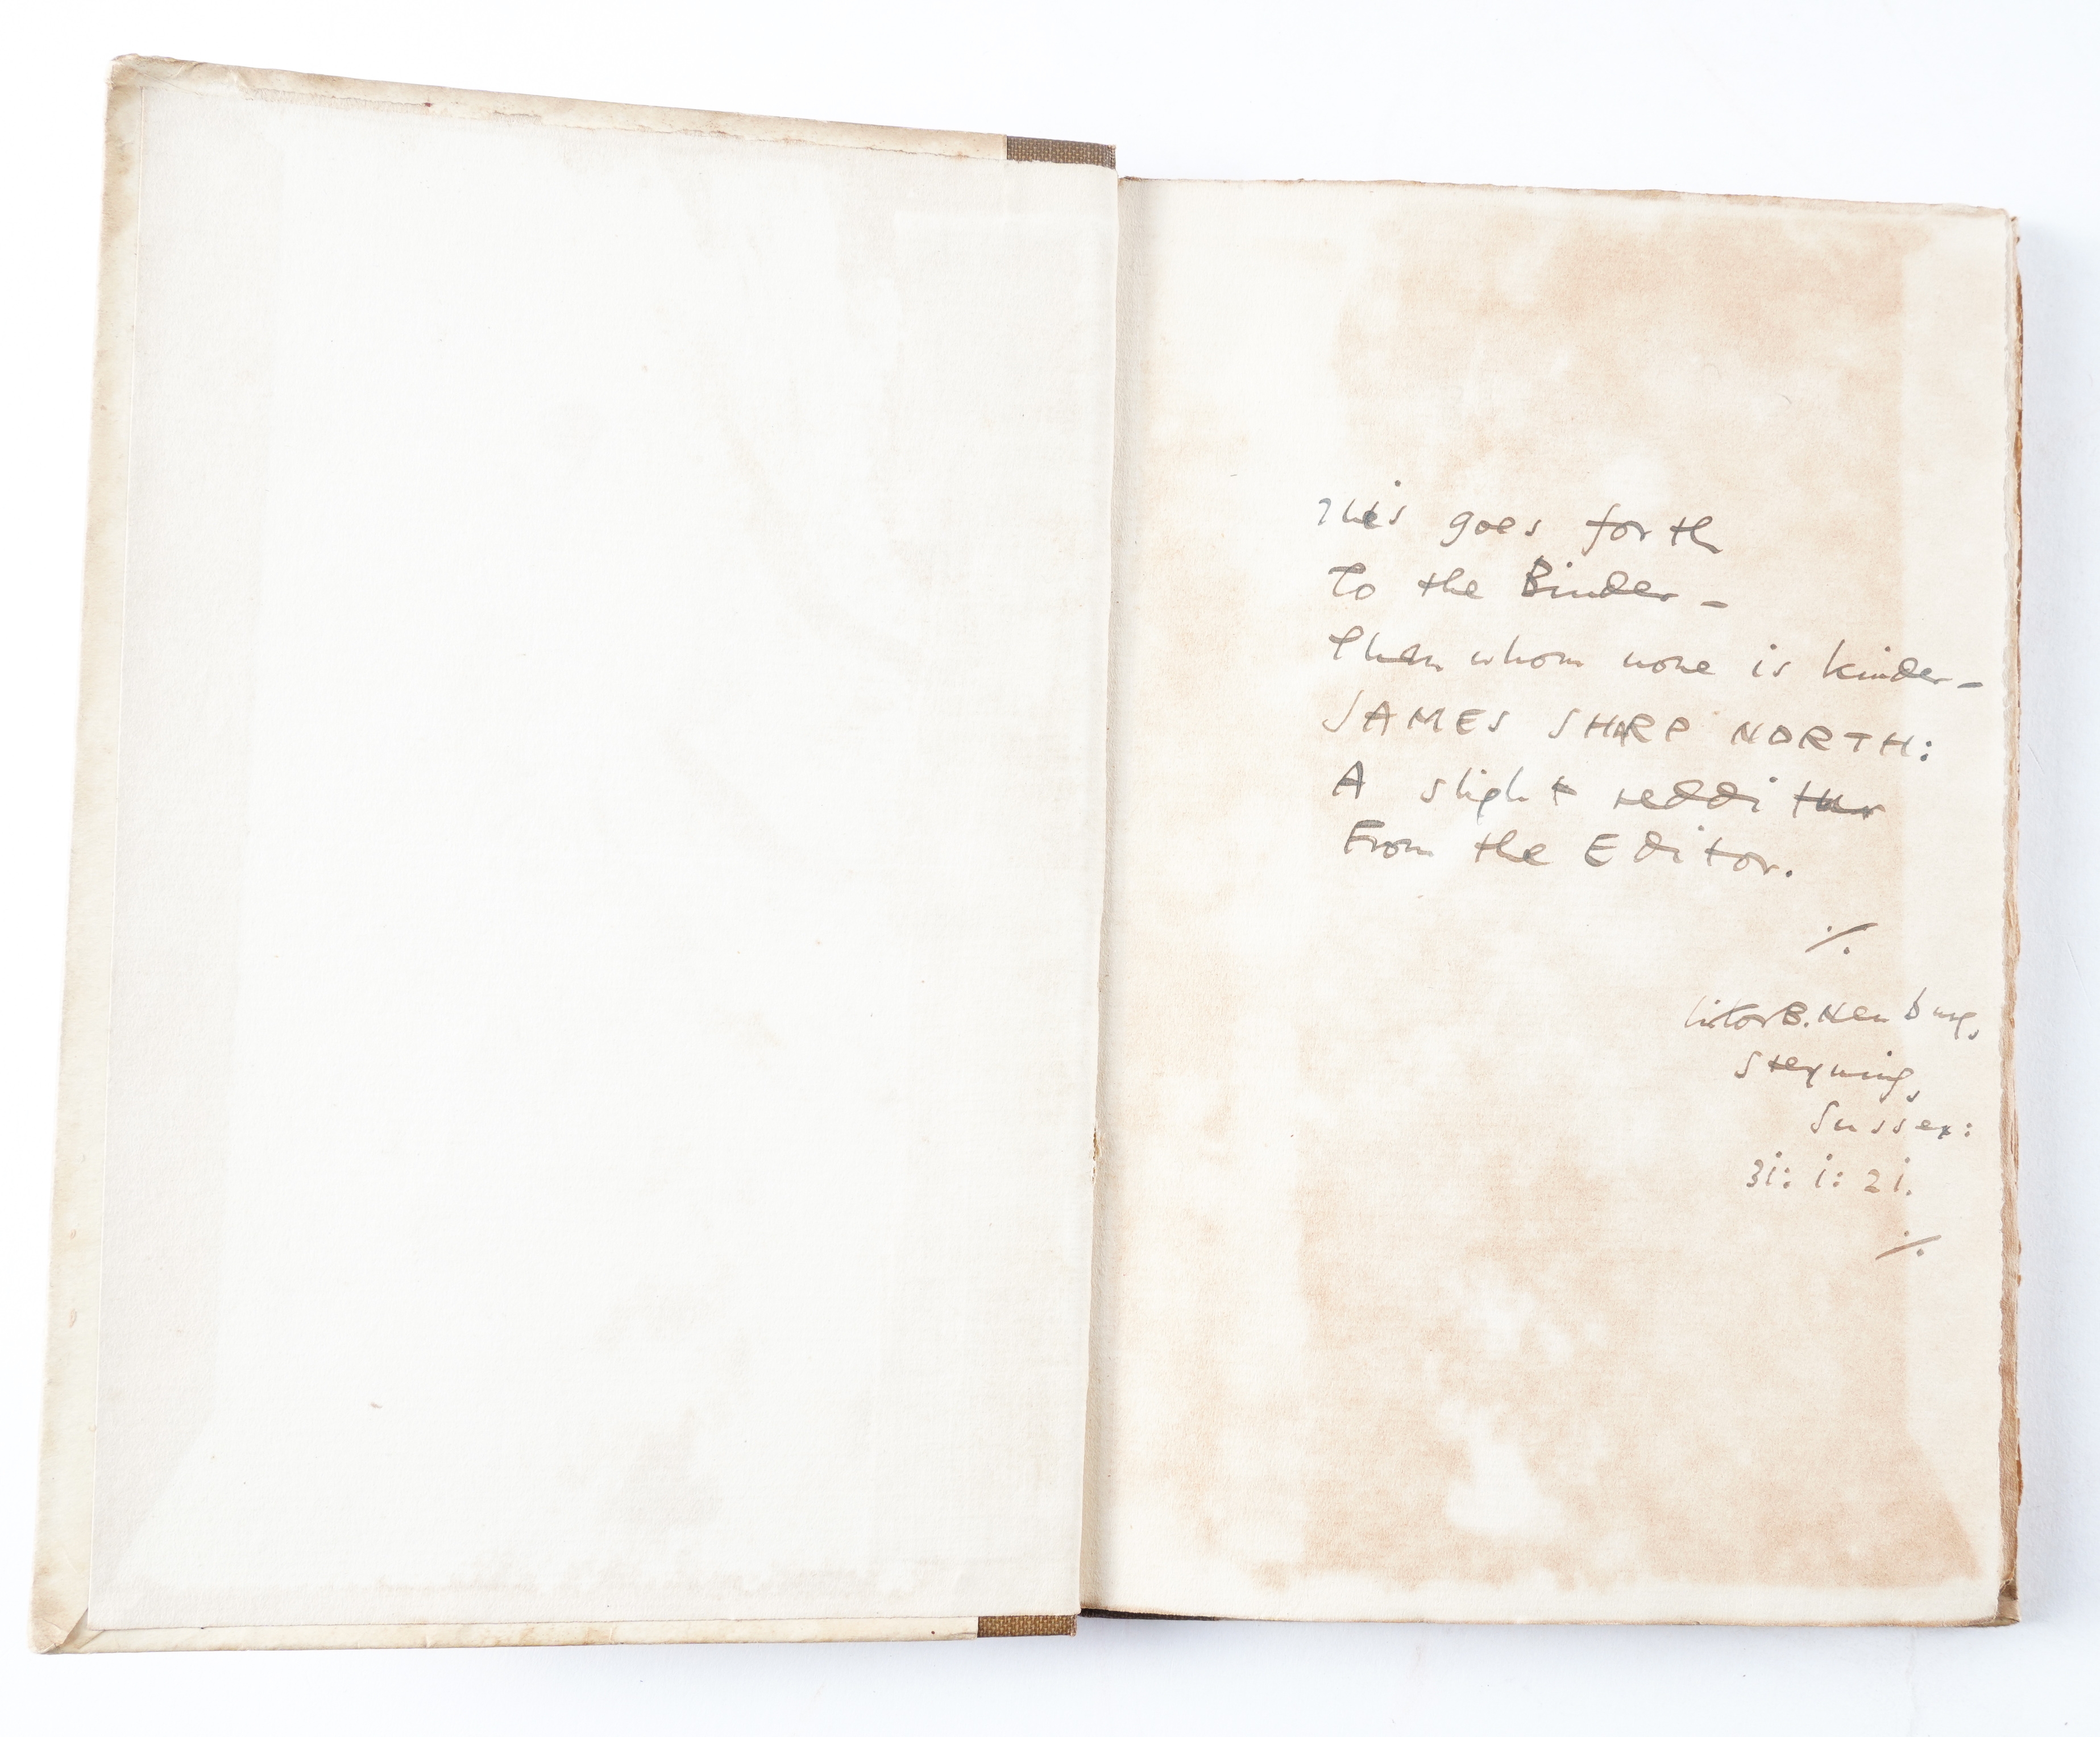 This goes forth
To the Binder –
Then whom none is kinder –
JAMES SHARP NORTH:
A slight redditur
From the Editor.
·/.
Victor B. Neuburg,
Steyning,
Sussex:
31: 1: 21.
·/.